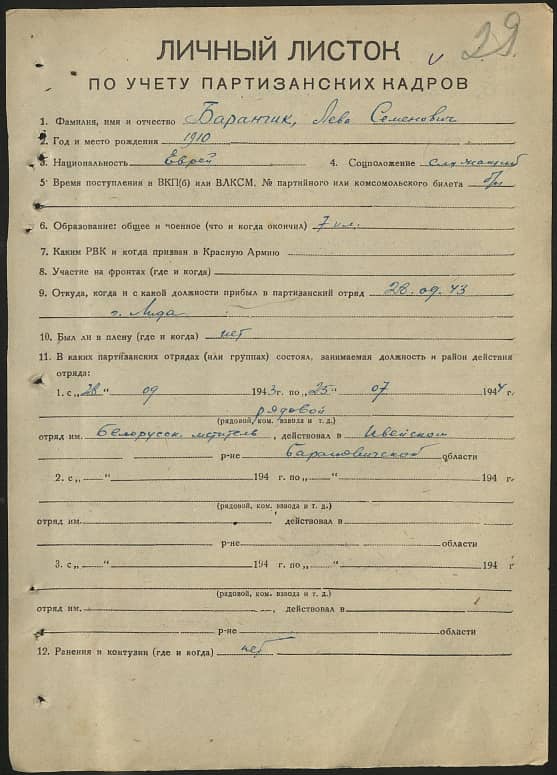 29
ЛИЧНЫЙ ЛИСТОК
ПО УЧЕТУ ПАРТИЗАНСКИХ КАДРОВ
1. Фамилия, имя и отчество Баранчик, Лева Семенович
2. Год и место рождения 1910
3. Национальность Еврей 4. Соцположение служащий
5. Время поступления в ВКП(б) или ВЛКСМ, № партийного или комсомольского билета б/п
6. Образование: общее и военное (что и когда окончил) 7 кл.
7. Каким РВК и когда призван в Красную Армию
8. Участие на фронтах (где и когда)
9. Откуда, когда и с какой должности прибыл в партизанский отряд 28.09.43
г. Лида
10. Был ли в плену (где и когда) нет
11. В каких партизанских отрядах (или группах) состоял, занимаемая должность и район действия
отряда:
1. с „28“ 09 1943г. по „25“ 07 1944 г.
рядовой
(рядовой, ком. взвода и т. д.)
отряд им. Белорусск. мститель, действовал в Ивейском
р-не Барановичской области
2. с „ “ 194 г. по „ “ 194 г.
(рядовой, ком. взвода и т. д.)
отряд им. , действовал в
р-не области
3. с „ “ 194 г. по „ “ 194 г
(рядовой, ком. взвода и т. д.)
отряд им. , действовал в
р-не области
12. Ранения и контузии (где и когда) нет